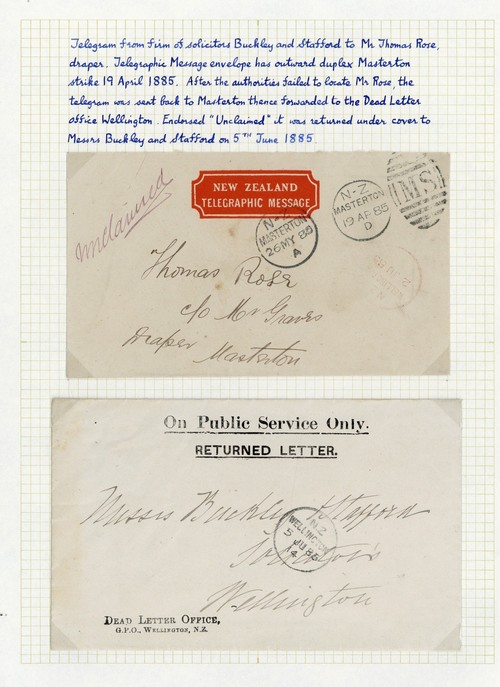 Telegram from firm of solicitors Buckley and Stafford to Mr Thomas Rose,
draper. Telegraphic Message envelope has outward duplex Masterton
strike 19 April 1885. After the authorities failed to locate Mr Rose, the
telegram was sent back to Masterton thence forwarded to the Dead Letter
office Wellington. Endorsed "Unclaimed" it was returned under cover to
Messrs Buckley and Stafford on 5TH June 1885.
Unclaimed
NEW ZEALAND
TELEGRAPHIC MESSAGE
N-Z
MASTERTON
26 MY 85
A
N-Z
MASTERTON
19 AP 85
D
MS
Thomas Rose
c/o Mr Graves
Draper Masterton
On Public Service Only.
RETURNED LETTER.
Messrs Buckley & Stafford
Solicitors
Wellington
N Z
WELLINGTON
5 JU 85
DEAD LETTER OFFICE,
G.P.O., WELLINGTON, N.Z.